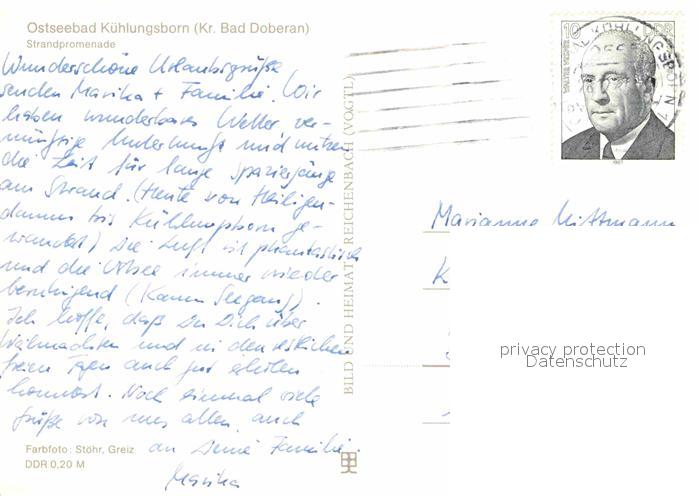 Ostseebad Kühlungsborn (Kr. Bad Doberan)
Strandpromenade
Wunderschöne Urlaubsgrüße
senden Marika + Familie. Wir
haben wunderbares Wetter, ver-
nünftige Unterkunft und nutzen
die Zeit für lange Spaziergänge
am Strand. (Heute von Heiligen-
damm bis Kühlungsborn ge-
wandert) Die Luft ist phantastisch
und die Ostsee immer wieder
beruhigend (Kaum Seegang).
Ich hoffe, daß Du Dich über
Weihnachten und in den restlichen
freien Tagen auch gut erholen
konntest. Noch einmal viele
Grüße von uns allen, auch
an Deine Familie.
Marika
Farbfoto: Stöhr, Greiz
DDR 0,20 M
BILD UND HEIMAT REICHENBACH (VOGTL)
10 DDR
1987
Marianne Mittmann
K
privacy protection
Datenschutz